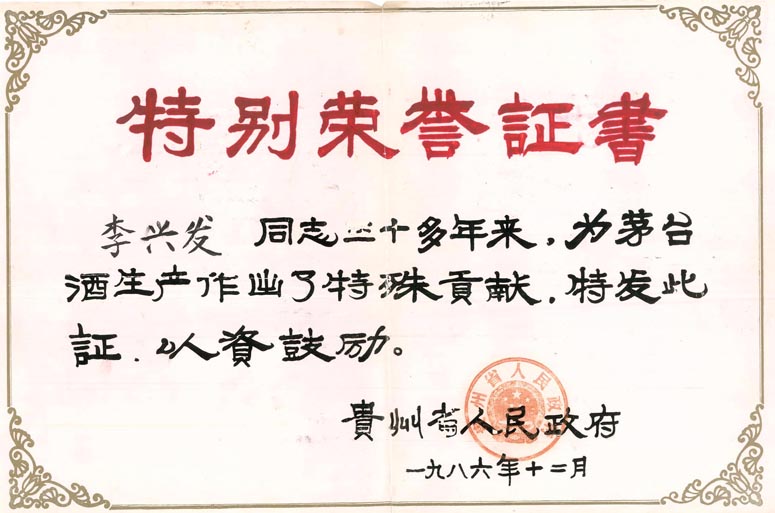 特别荣誉証書
李兴发 同志三十多年来，为茅台
酒生产作出了特殊貢献，特发此
証．以人資鼓励。
貴州省人民政府
一九八六年十二月
贵州省人民政府